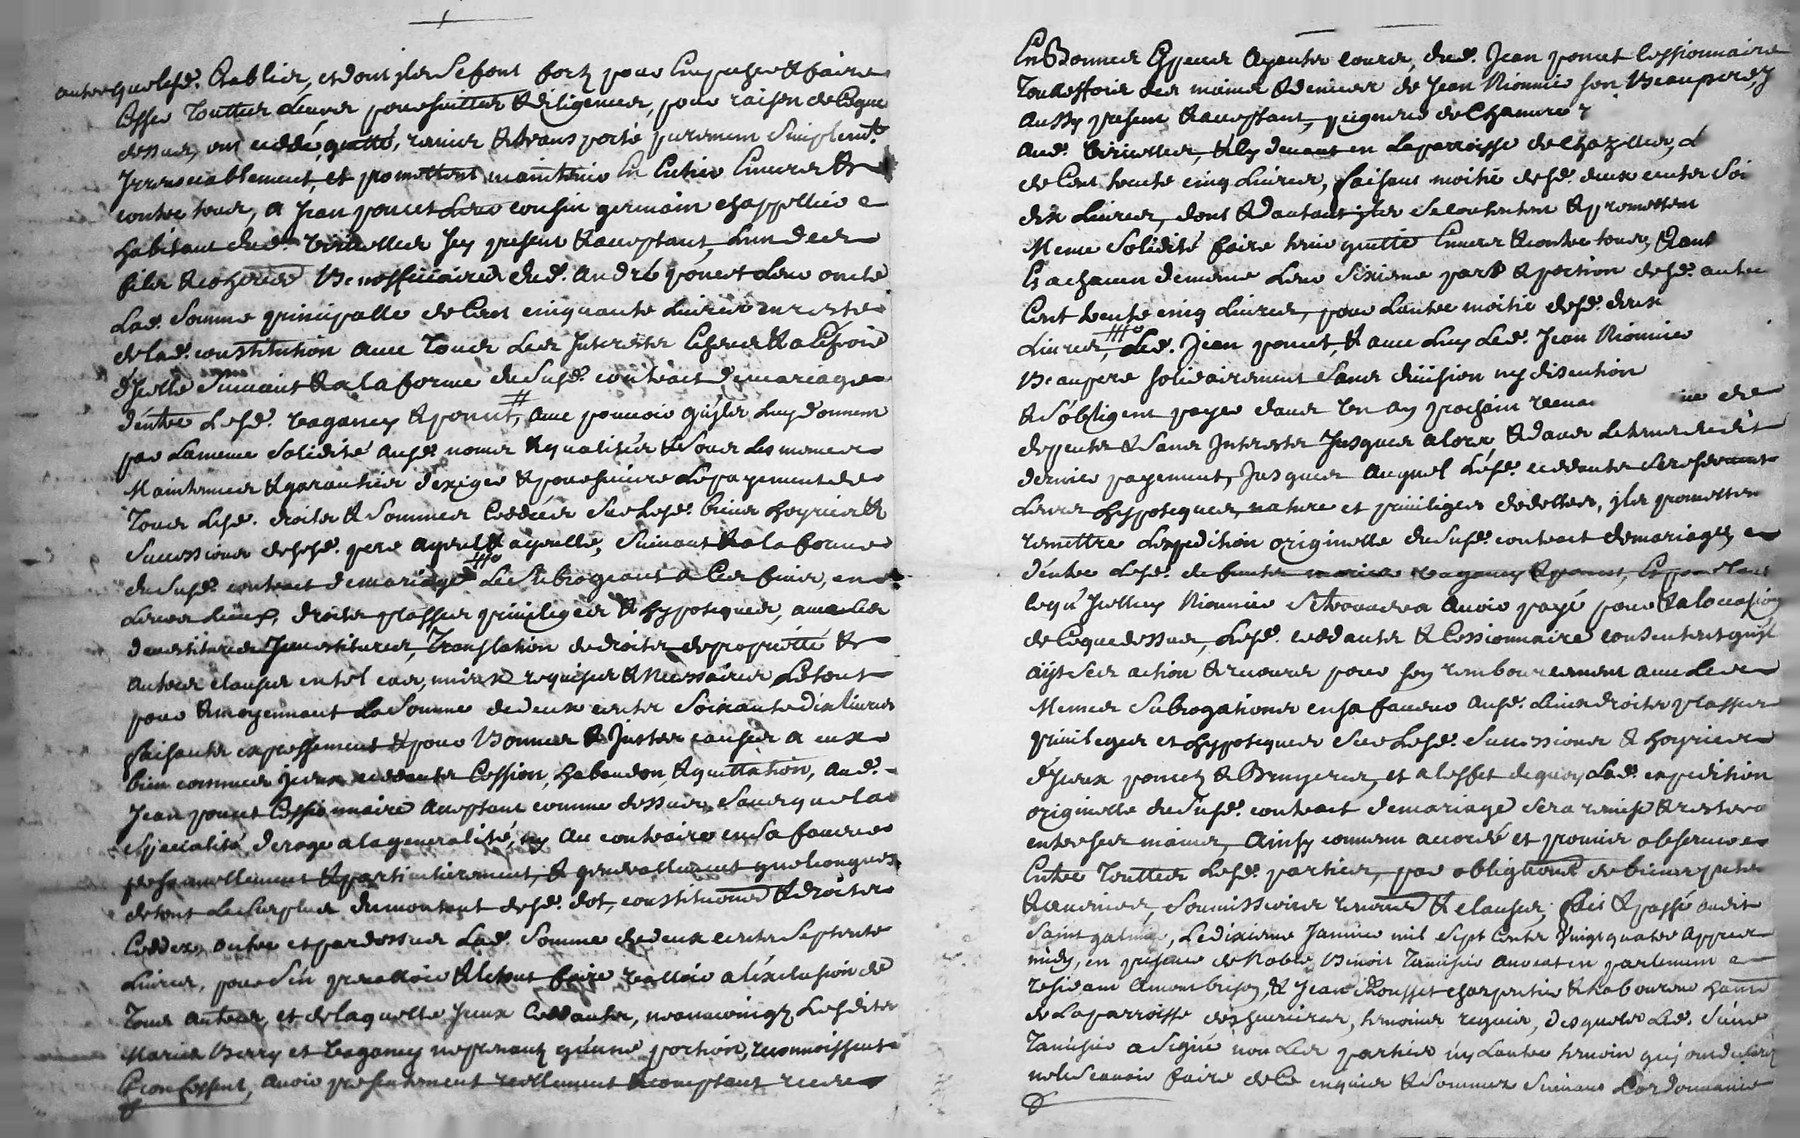 autre que lesd. Establies, et dont ils se font fort pour Empecher & faire
Cesser Touttes leurs poursuittes & diligences, pour raison de Ceque
dessus, ont ceddé, quitté, remis & transporté purement Simplemt.
Irrevocablement, et promettent maintenir En Entier Envers &
contre tous, a Jean poncet Leur cousin germain chappellier
habitant dud. Icy present & acceptant, L'un des
fils & coheritiers Beneffeciaires dud. André poncet Leur oncle
Lad. Somme principalle de Cent cinquante Livres en reste
de lad. constitution avec Tous Les Interests Escheus & a Eschoir
d'Icelle Suivant & a la forme du Susd. contract de mariage
d'entre Lesd. taganey & poncet, avec pouvoir qu'ils Luy donnent
par La meme Solidité ausd. noms & qualités & Sous Les memes
Maintenues & garanties d'exiger & poursuivre Le payement de
Tous Lesd. droits & Sommes Ceddées Sur Lesd. biens hoyries &
Successions desd. pere ayeul & ayeulle, Suivant & a la forme
du Susd. contract de mariage Le Subrogeant a Ces fins, en
Leurs Lieux, droits places privileges & hypoteques, avec Les
devestitures Investitures, Translation de droits de proprietté &
autres clauses en tel cas, mieux requises & Necessaires Le tout
pour & moyennant La Somme de deux cents Soixante dix livres
faisants expressement & pour Bonnes & Justes causes a eux
bien connues Iceux ceddants Cession, habandon, & quittation, aud.
Jean poncet Cessionnaire acceptant comme dessus, Sans que la
Specialité deroge a la generalité, ny au contraire en Sa faveur
personnellement & particulierement, & generallement quelconques
de tout Le Surplus du montant desd. dot, constitutions & droits
Ceddez, outre et par dessus Lad. Somme de deux cents Septente
Livres, pour S'en prevalloir & Le tout faire valloir a l'exclusion de
Tous autres, et de laquelle Iceux Ceddants, neanmoings Lesdites
Maries Berry et taganey ne prenant qu'une portion, reconnoissent
& confessent, avoir presentement reellement & comptant receu
En Bonnes Especes ayants cours, dud. Jean poncet Cessionnaire
Touteffois des mains & deniers de Jean Rionnie son Beaupere,
aussy present & acceptant, peigneur de Chanvre
aud. & Cy devant en La parroisse de Chazelles,
de Cent trente cinq Livres, faisant moitié desd. deux cents Soi
dix Livres, dont & d'autant ils Se contentent & promettent
Meme Solidité faire tenir quitte Envers & contre tous, &ant
Es a chacun d'eux Leur Sixieme part & portion desd. autre
Cent trente cinq Livres, pour L'autre moitié desd. deux
Livres, Led. Jean poncet, & avec Luy Led. Jean Rionnie
Beaupere Solidairement Sans division ny discution
& S'obligent payer dans un an prochain venant
depents & Sans Interests Jusques alors & dans Le terme dud.
dernier payement, Jusques auquel Lesd. ceddants Se reservent
Leurs hypoteques, nature et privileges de dettes, ils promettent
remettre L'expedition originelle du Susd. contract de mariage,
d'entre Lesd. deffunts taganey & poncet,
ce qu'Icelluy Rionnie Se trouvera avoir payé pour & a l'occasion
de Ce que dessus, Lesd. ceddants & Cessionnaire consentent qu'il
ayt Ses action & recours pour Son remboursement avec Les
Memes Subrogations en sa faveur ausd. Lieux droits places
privileges et hypoteques Sur Lesd. Successions & hoyries
d'Iceux poncet & Bruyeres, et a l'effet de quoy Lad. expedition
originelle du Susd. contract de mariage Sera remise & restera
entre Ses mains, Ainsy convenu accordé et promis observer
Entre Touttes Lesd. parties, par obligations de biens
Soumissions renons. & clauses, fait & passé audit
Saint galmier, Le dixieme Janvier mil Sept Cents vingt quatre apprès
midy, en presence de Noble Benoit avocat en parlement
residant a Montbrison, & Jean Rousset charpentier & habourene
de La parroisse des temoins requis, desquels Led. Sieur
a Signé non Les parties ny L'autre temoin qui ont declaré
ne le Scavoir faire de Ce enquises & Sommez Suivant L'ordonnance